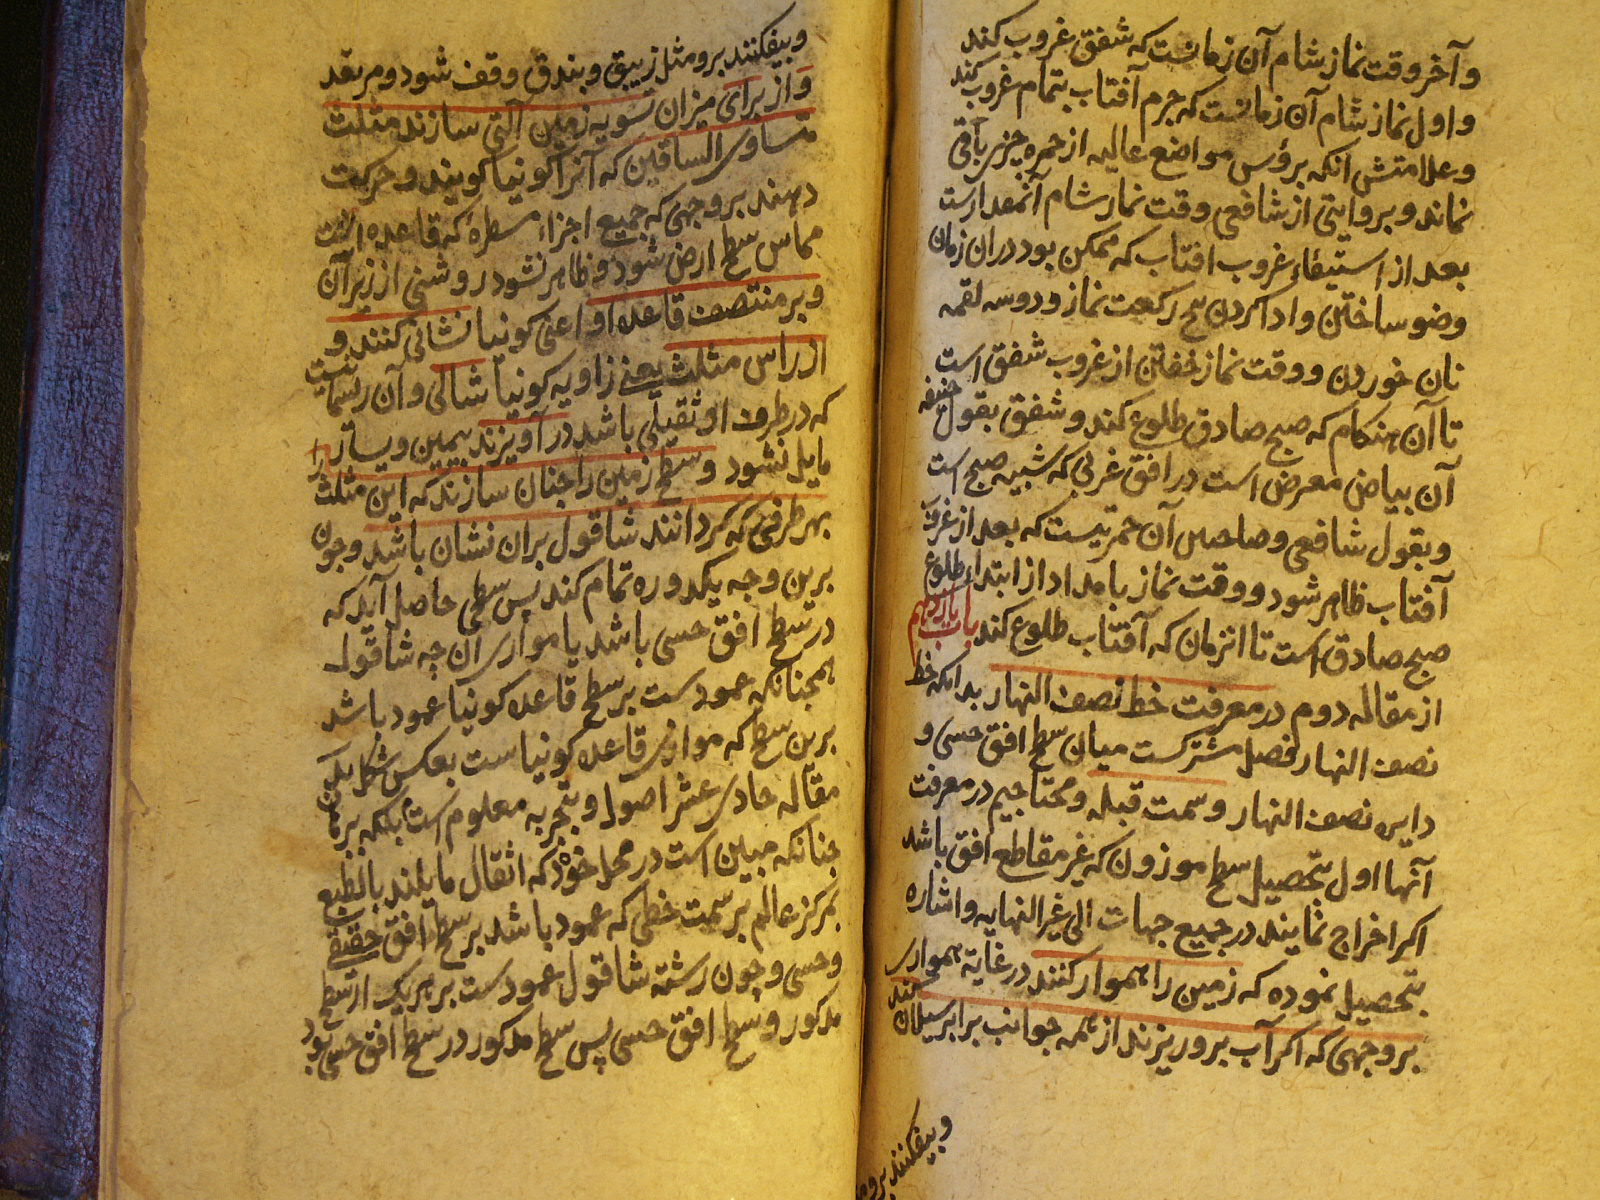 و آخر وقت نماز شام آن زمانست که شفق غروب کند
و اول نماز شام آن زمانست که جرم آفتاب بتمام غروب کند
و علامتش آنکه بر رؤس مواضع عالیه از حمره چیزی باقی
نماند و بروایتی از شافعی وقت نماز شام آنمقدارست
بعد از استیفاء غروب افتاب که ممکن بود دران زمان
وضو ساختن و ادا کردن پنج رکعت نماز و دو سه لقمه
نان خوردن و وقت نماز خفتن از غروب شفق است
تا آن هنکام که صبح صادق طلوع کند و شفق بقول حنیفه
آن بیاض معرض است در افق غربی که شبیه صبح است
و بقول شافعی و صاحبین آن حمرتیست که بعد از غروب
آفتاب ظاهر شود و وقت نماز بامداد از ابتداء طلوع
صبح صادق است تا انزمان که آفتاب طلوع کند باب یازدهم
از مقاله دوم در معرفت خط نصف النهار بدانکه خط
نصف النهار فصل مشترکست میان سطح افق حسی و
دایره نصف النهار و سمت قبله و محتاجیم در معرفت
آنها اول بتحصیل سطح موزون که غیر مقاطع افق باشد
اکر اخراج نمایند در جمیع جهات الی غیر النهایه و اشاره
بتحصیل نموده که زمین را هموار کنند در غایة همواری
بروجهی که اکر آب برو ریزند از همه جوانب برابر سیلان کند
و بیفکنند برو
و بیفکنند برو مثل زیبق و بندق وقف شود و مرتعد
و از برای میزان تسویه زمین آلتی سازند مثلث
متساوی الساقین که آنرا کونیا کویند و حرکت
دهند بروجهی که جمیع اجزاء مسطره که قاعده است
مماس سطح ارض شود و ظاهر نشود روشنی از زیر آن
و بر منتصف قاعده او اعنی کونیا نشانی کنند و
از راس مثلث یعنی زاویه کونیا شاقولی و آن ریسمانیست
که در طرف او ثقیلی باشد در آویزند بیمین و یسار
مایل نشود و سطح زمین را چنان سازند که این مثلث را
بهر طرفی که کردانند شاقول بران نشان باشد و چون
برین وجه یکدوره تمام کند پس سطحی حاصل آید که
در سطح افق حسی باشد یا موازی ان چه شاقول
همچنانکه عمودست بر سطح قاعده کونیا عمود باشد
برین سطح که موازی قاعده کونیاست بعکس شکل
مقاله حادی عشر اصول و بتجربه معلوم است بلکه
چنانکه مبین است در محل خود که اثقال مایلند بالطبع
بمرکز عالم بر سمت خطی که عمود باشد بر سطح افق حقیقی
و حسی و چون رشته شاقول عمودست بر هریک از سطح
مذکور و سطح افق حسی پس سطح مذکور در سطح افق حسی بود